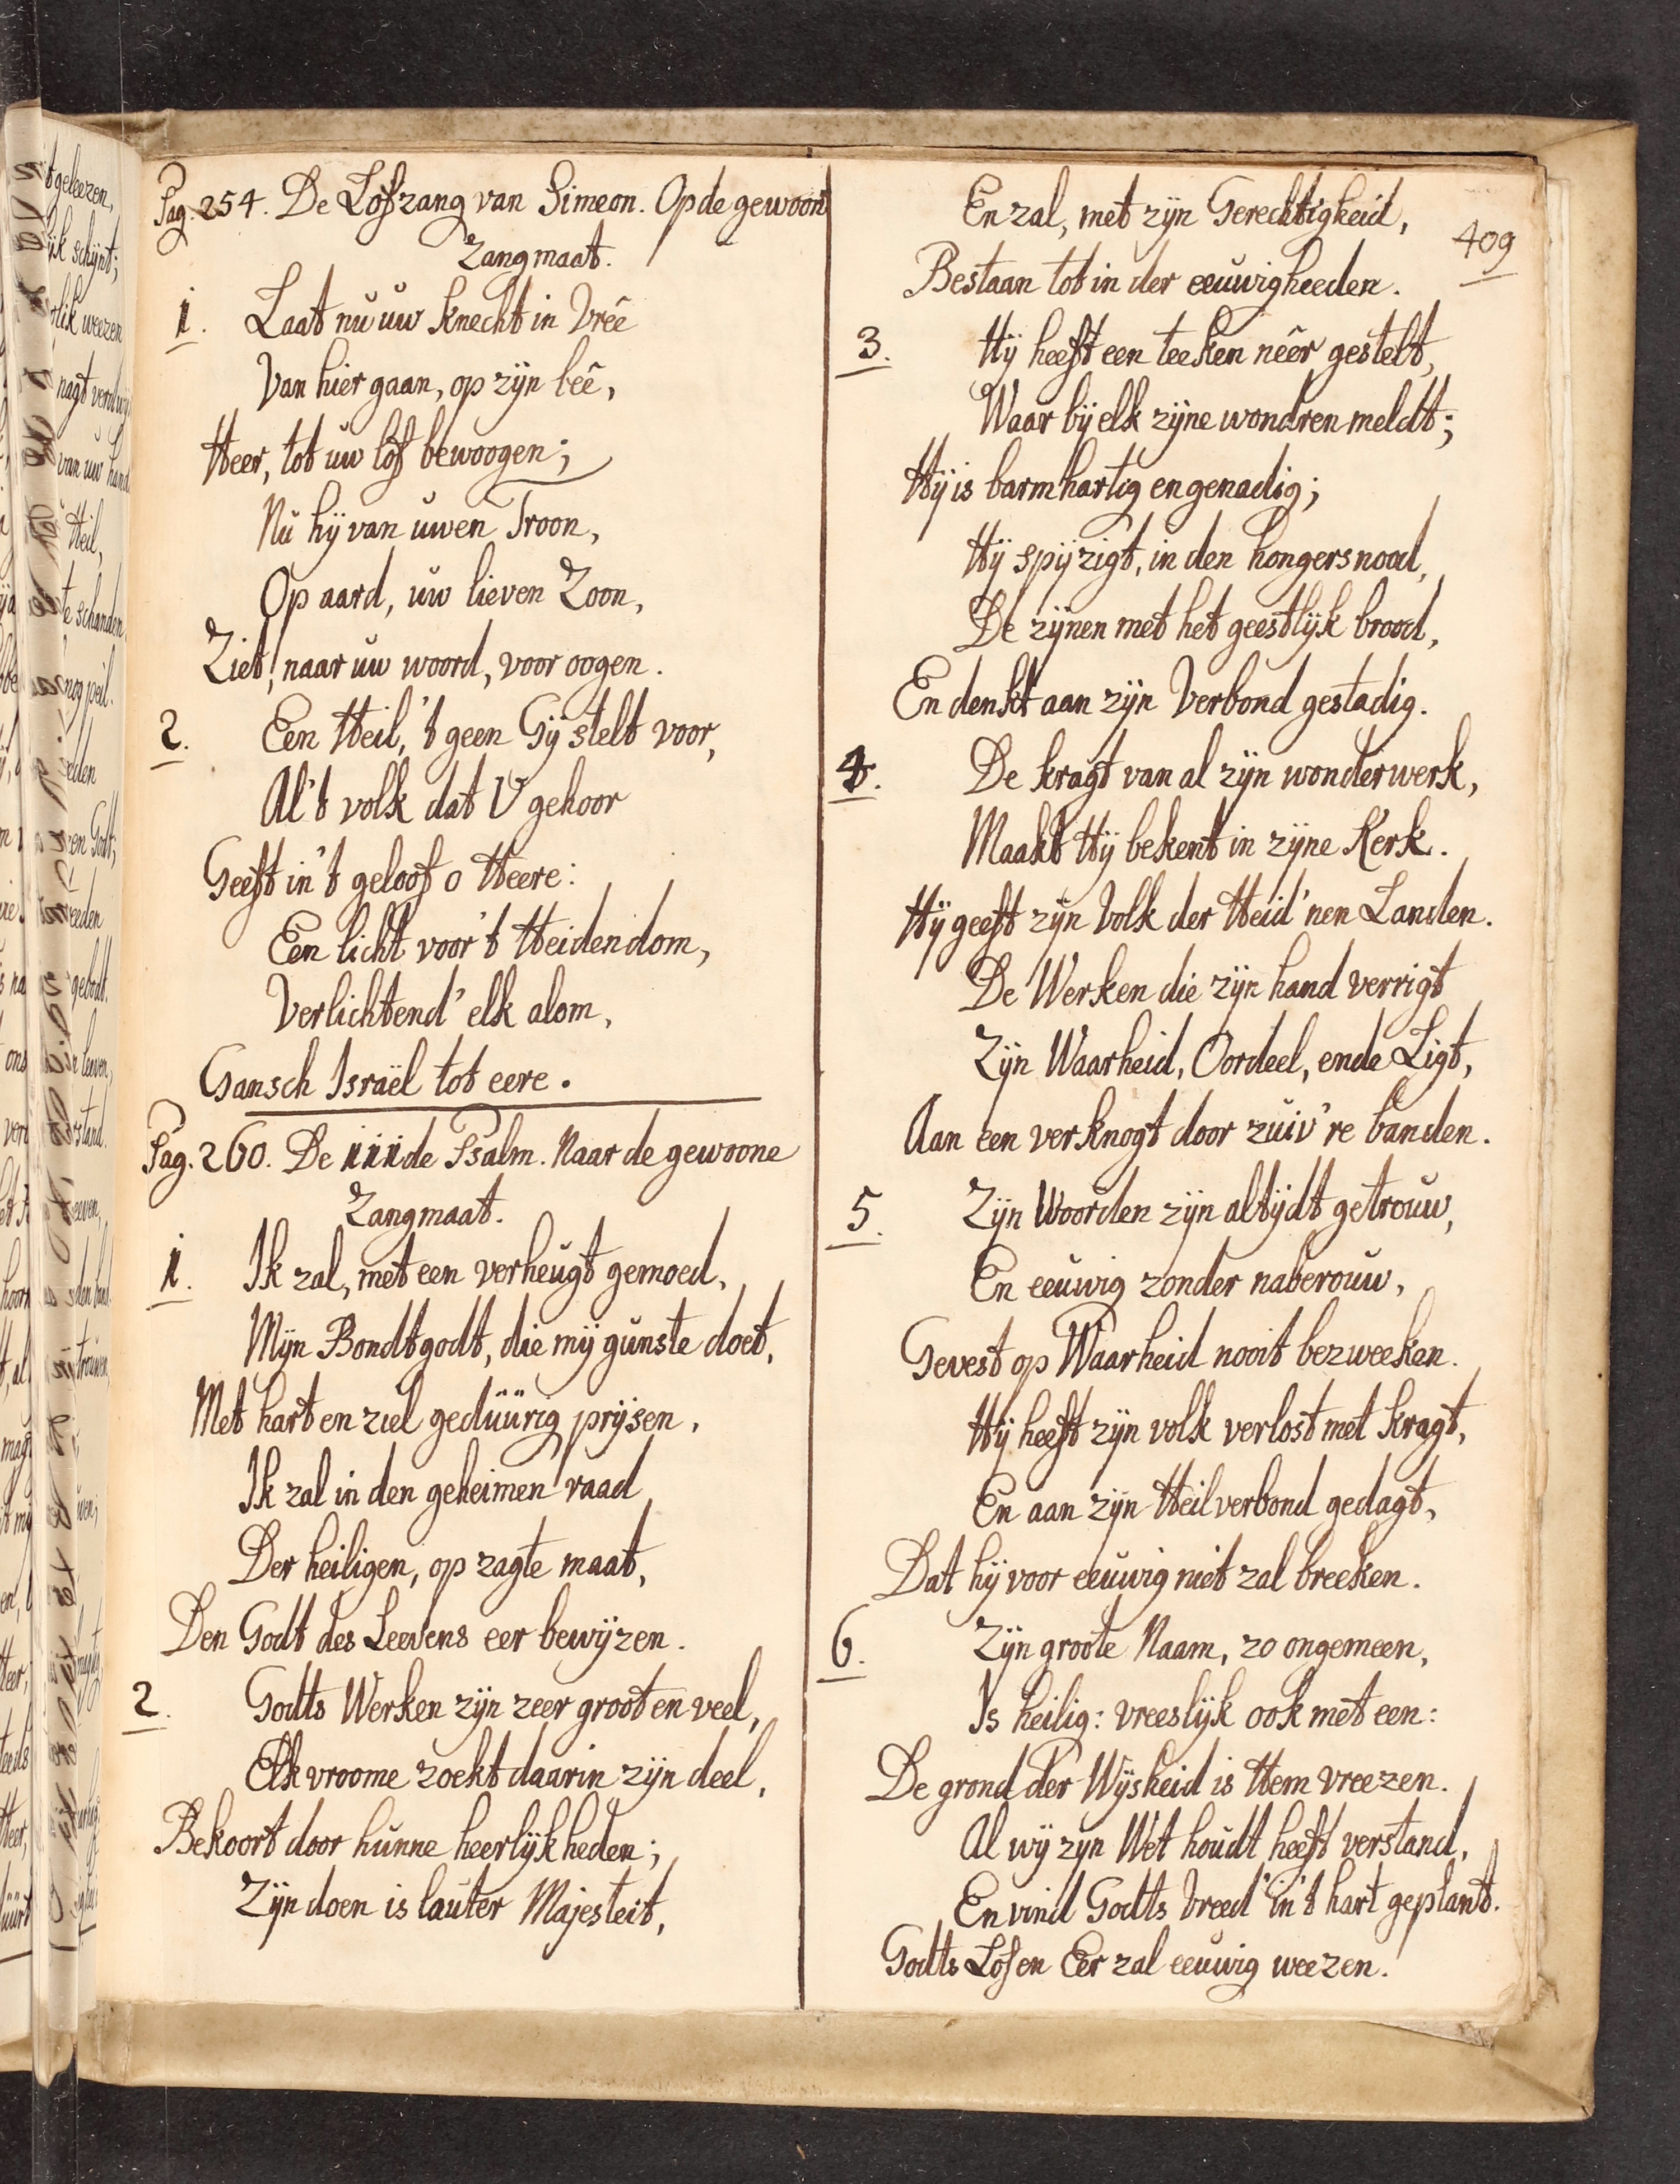 Pag. 254. De Lofzang van Simeon. Op de gewoon
Zangmaat.
1. Laat nu uw knecht in Vreê
Van hier gaan, op zÿn beê,
Heer, tot uw lof bewoogen;
Nu hÿ van uwen Troon,
Op aard, uw lieven Zoon,
Ziet, naar uw woord, voor oogen.
2. Een Heil, 't geen Gÿ stelt voor,
Al't volk dat U gehoor
Geeft in't geloof o Heere:
Een licht voor't Heidendom,
Verlichtend' elk alom,
Gansch Israël tot eere.
Pag. 260. De 111de Psalm. Naar de gewoone
Zangmaat.
1. Ik zal, met een verheugt gemoed,
Mÿn Bondtgodt, die mÿ gunste doet,
Met hart en ziel geduurig prÿsen,
Ik zal in den geheimen raad
Der heiligen, op zagte maat,
Den Godt des Leevens eer bewÿzen.
2. Godts Werken zÿn zeer groot en veel,
Elk vroome zoekt daarin zÿn deel,
Bekoort door hunne heerlÿkheden;
Zÿn doen is lauter Majesteit,
409
En zal, met zÿn Gerechtigheid,
Bestaan tot in der eeuwigheeden.
3. Hÿ heeft een teeken nêêr gestelt,
Waar bÿ elk zÿne wondren meldt;
Hÿ is barmhartig en genadig;
Hÿ spÿzigt, in den hongersnood,
De zÿnen met het geestlÿk brood,
En denkt aan zÿn Verbond gestadig.
4. De kragt van al zÿn wonderwerk,
Maakt Hÿ bekent in zÿne Kerk.
Hÿ geeft zÿn Volk der Heid'nen Landen.
De Werken die zÿn hand verrigt
Zÿn Waarheid, Oordeel, ende Ligt,
Aan een verknogt door zuiv're banden.
5. Zÿn Woorden zÿn altÿdt getrouw,
En eeuwig zonder naberouw,
Gevest op Waarheid nooit bezweeken.
Hÿ heeft zÿn volk verlost met kragt,
En aan zÿn Heilverbond gedagt,
Dat hÿ voor eeuwig niet zal breeken.
6. Zÿn groote Naam, zo ongemeen,
Is heilig: vreeslÿk ook met een:
De grond der Wÿsheid is Hem vreezen.
Al wÿ zÿn Wet houdt heeft verstand,
En vind Godts Vreed' in't hart geplant.
Godts Lof en Eer zal eeuwig weezen.